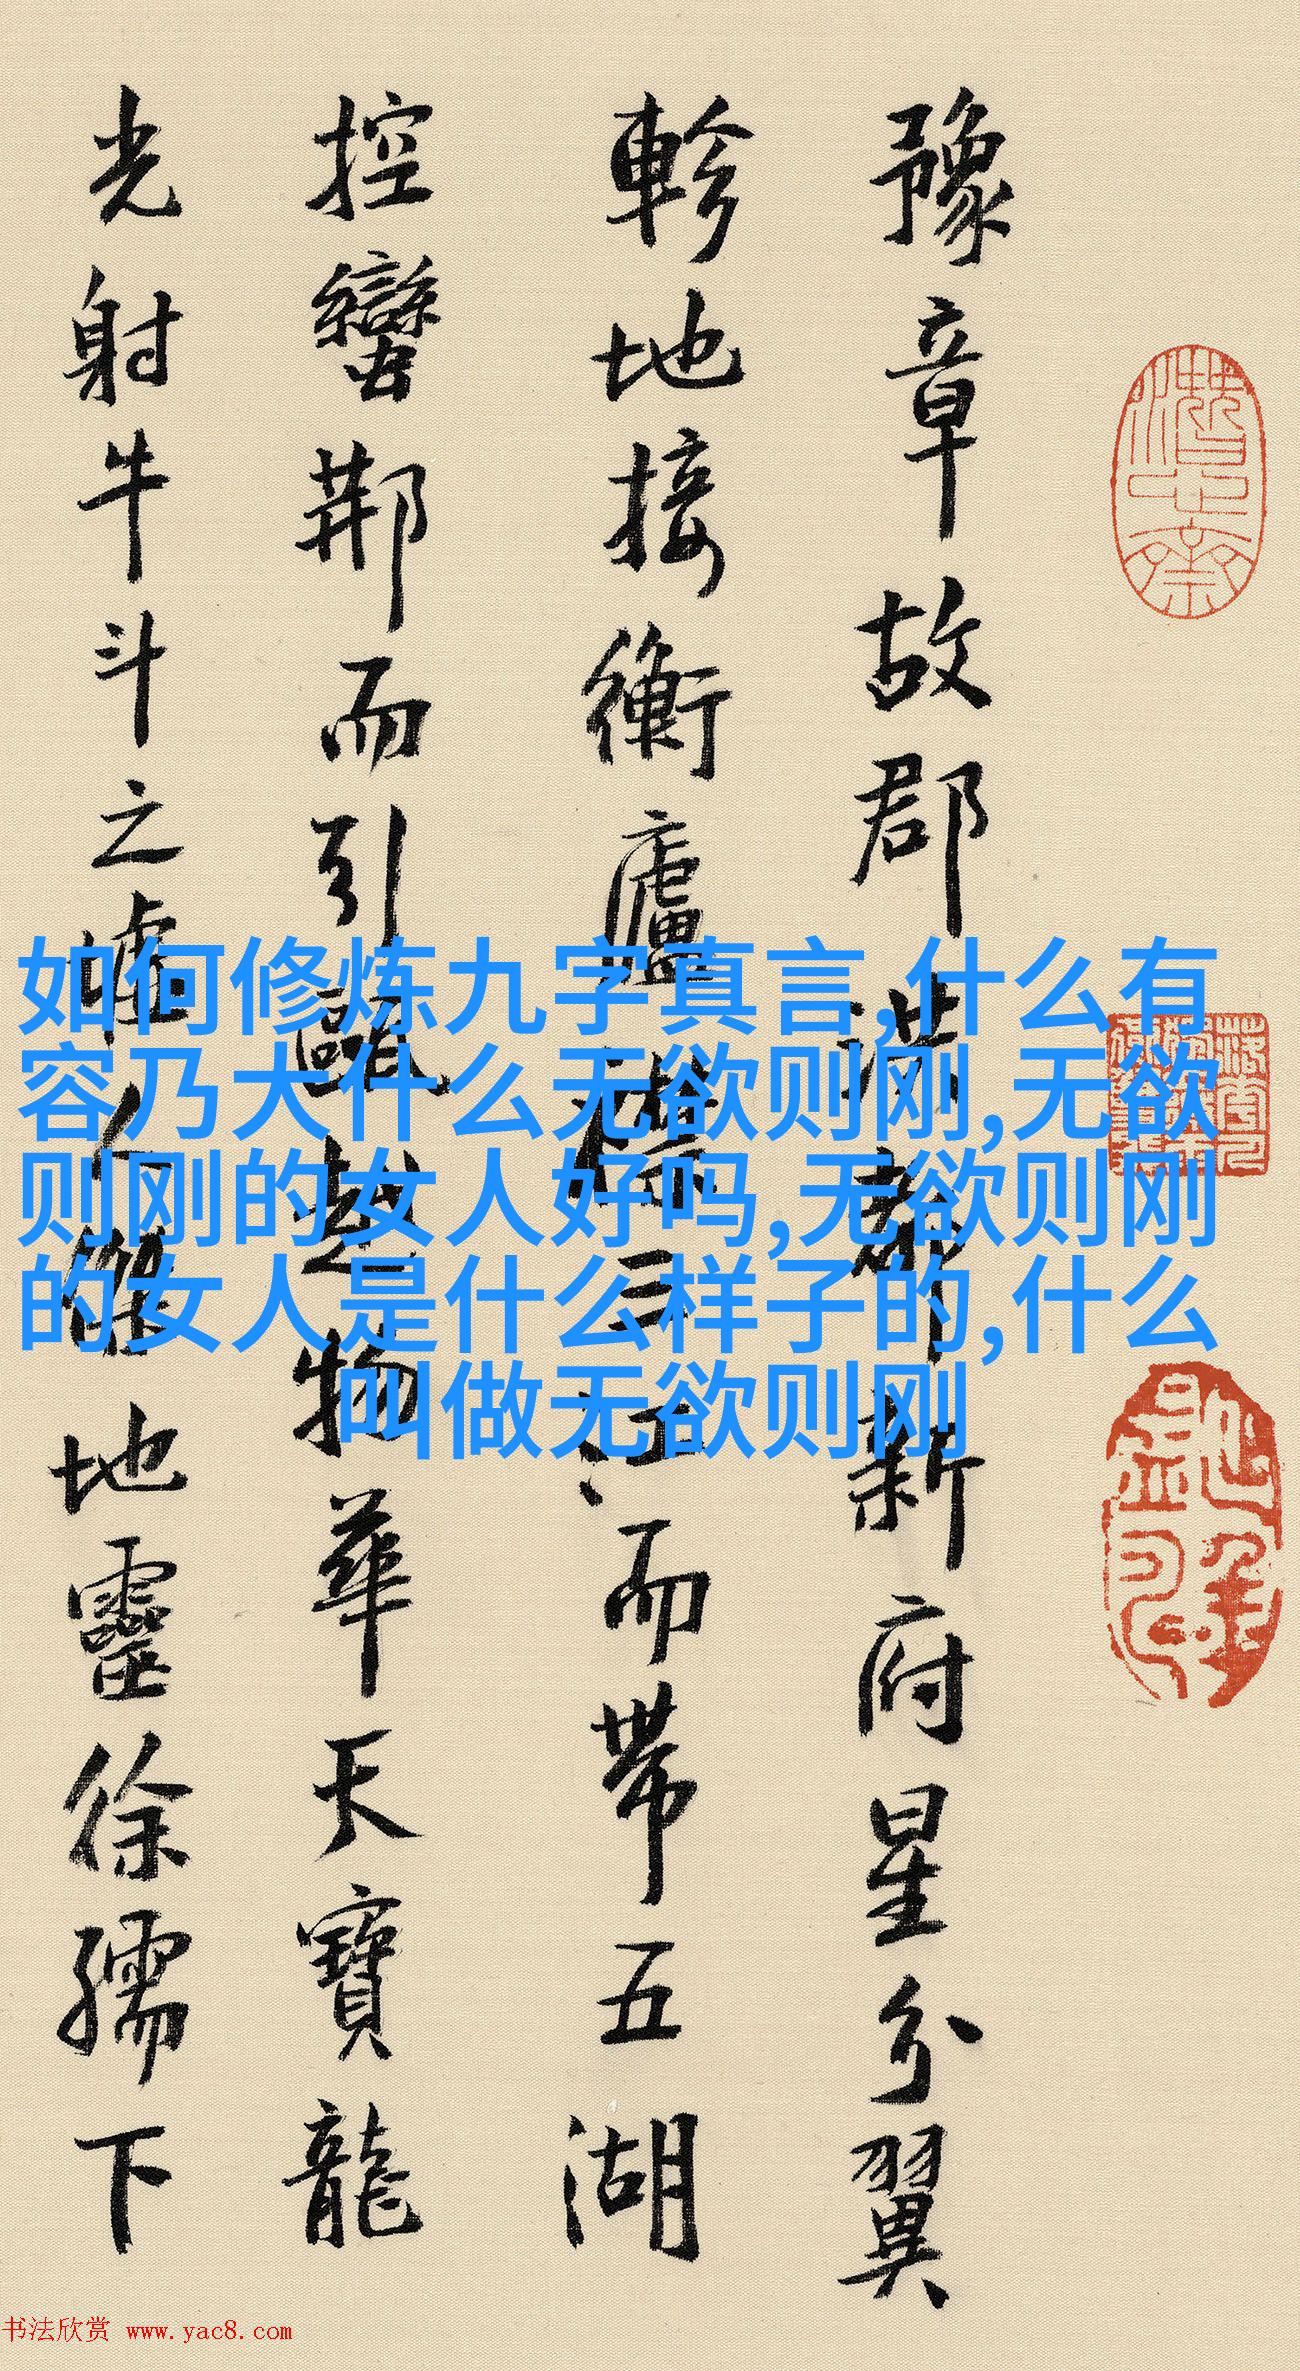 豫章故郡洪都新府星分翼
軫地接衡廬襟三江而帶五湖
控蠻荆而引甌越物華天寶龍
光射牛斗之墟人傑地靈徐孺下
如何修炼九字真言,什么有
容乃大什么无欲则刚,无欲
则刚的女人好吗,无欲则刚
的女人是什么样子的,什么
叫做无欲则刚
书法欣赏 www.yac8.com